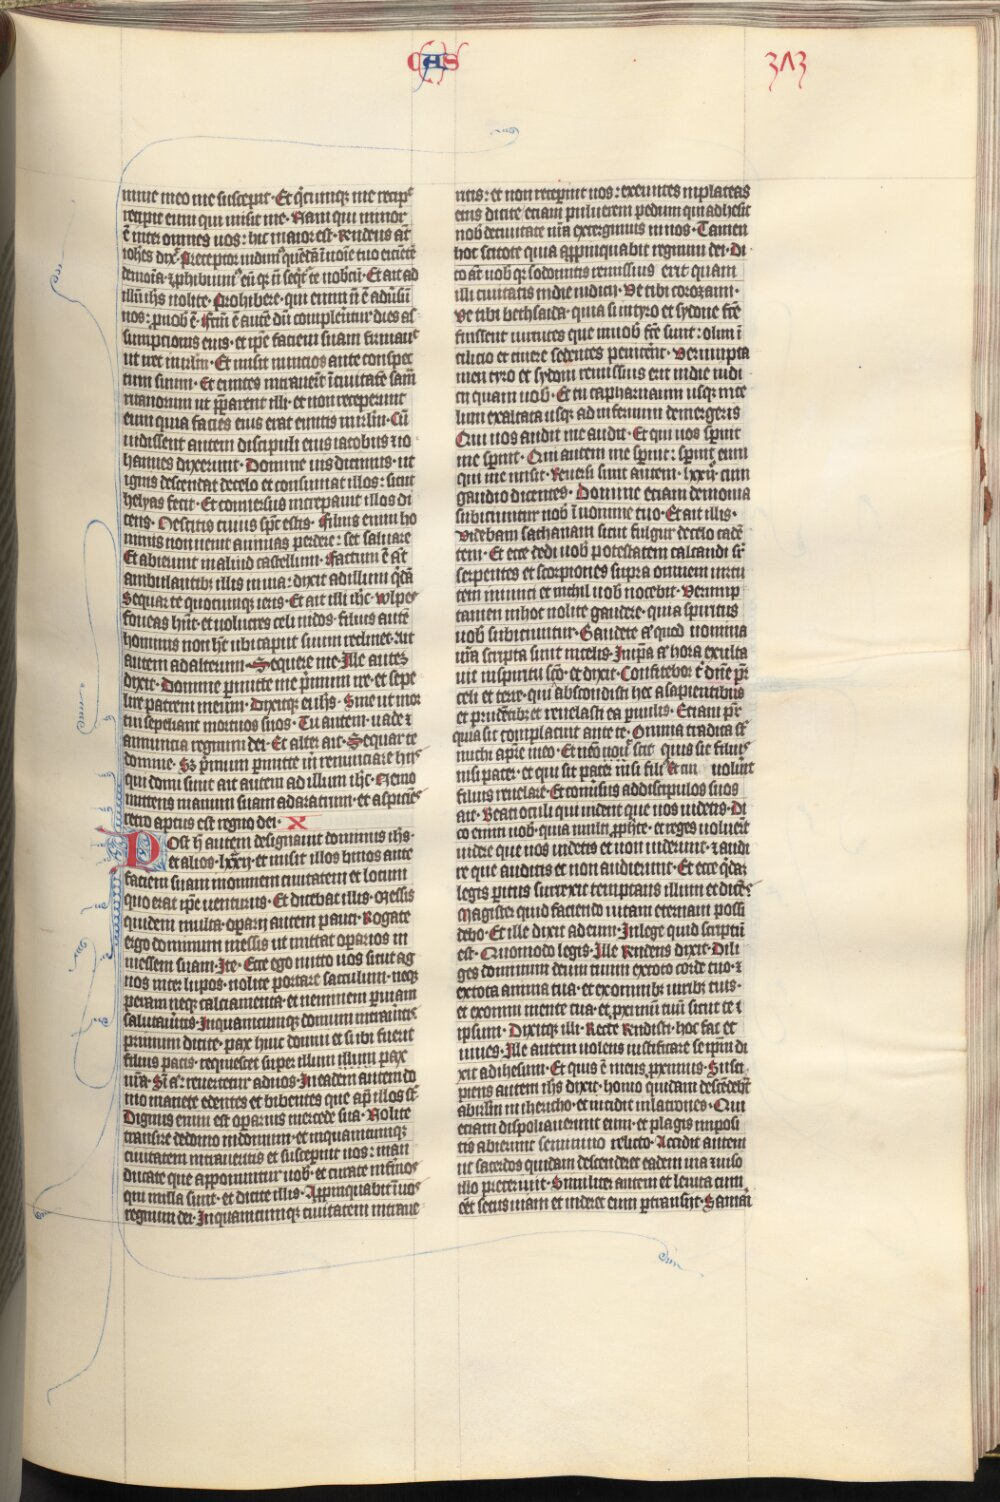 CAS
313
mine meo me suscepit. Et q̃cumq; me recipˢ
recipit eum qui misit me. Nam qui minor
ẽ inter omnes uos: hic maior est. Rñdens aũ
ioh̃es dix̃. Preceptor uidimˢ quẽdã ĩ noĩe tuo eicietẽ
demoĩa. ⁊ ꝓhibuimˢ eũ qr̃ ñ seqt̃ te nobcũ. Et ait ad
illũ ih̃s nolite. Prohibere. qui enim ñ ẽ adũsũ
uos: ꝓ uob ẽ. Fcm̃ ẽ autẽ dũ complerẽtur dies as
sumptionis eius. et ip̃e faciem suam firmauˢ
ut iret irrl̃m. Et misit nuncios ante conspec
tum suum. Et euntes intrauert̃ ĩ ciuitatẽ sam̃
ritanorum ut ꝑarent illi. et non receperunt
eum quia facies eius erat euntis irrl̃m. Cũ
uidissent autem discipuli eius iacobus ⁊ io
hannes dixerunt. Domine uis dicimus. ut
ignis descendat de celo et consumat illos: sicut
helyas fecit. Et conuersus increpauit illos di
cens. Nescitis cuius sp̃c estis. Filius enim ho
minis non uenit animas perdere: set saluare
Et abierunt in aliud castellum. Factum ẽ aũt
ambulantib; illis in uia: dixit ad illum q̃dã
Sequar te quocumq; ieris. Et ait illi ih̃c. Wlpes
foueas hñt. et uolucres celi nidos. filius autẽ
hominis non h̃t ubi caput suum reclinet. Ait
autem ad alterum. Sequere me. Ille autẽ
dixit. Domine ꝑmitte me p̃mum ire. et sepe
lire patrem meum. Dixitq; ei ih̃s. Sine ut mor
tui sepeliant mortuos suos. Tu autem uade ⁊
annuncia regnum dei. Et alter ait. Sequar te
domine. Sꝫ p̃mum ꝑmitte m̃ renunciare hijs
qui domi sunt ait autem ad illum ih̃c. Nemo
mittens manum suam ad aratrum. et aspiciẽs
retro aptus est regno dei. X
Post h̃ autem designauit dominus ih̃s
et alios .lxxij. et misit illos binos ante
faciem suam in omnem ciuitatem et locum
quo erat ip̃e uenturus. Et dicebat illis. Messis
quidem multa. oꝑarij autem pauci. Rogate
ergo dominum messis ut mittat oꝑarios in
messem suam. Ite. Ecce ego mitto uos sicut ag
nos inter lupos. nolite portare sacculum. neq;
peram neq; calciamenta. et neminem ꝑ uiam
salutaũitis. In quamcumq; domum intraueritˢ
primum dicite. pax huic domui et si ibi fuerit
filius pacis. requiescet super illum illum pax
ur̃a. Sĩ aũ. reuertetur ad uos. In eadem autem do
mo manete edentes et bibentes que ap̃ illos st̃
Dignus enim est oꝑarius mercede sua. Nolite
transire de domo in domum. et in quamcumq;
ciuitatem intraueritis et susceperint uos: man
ducate que apponuntur uob̃. et curate infirmoˢ
qui in illa sunt. et dicite illis. Appinquabit ĩ uoˢ
regnum dei. In quamcumq; ciuitatem intraue
ritis: et non receperint uos: exeuntes in plateas
eius dicite etiam puluerem pedum qui adhesit
nob̃ de ciuitate ur̃a extergimus in uos. Tamen
hoc scitote quia appinquabit regnum dei. Di
co aũt uob̃ qr̃ sodomitis remissius erit quam
illi ciuitatis in die iudicij. Ve tibi corozaim.
Ve tibi bethsaida. quia si in tyro et sydone fc̃e
fuissent uirtutes que in uob̃ fc̃e sunt: olim ĩ
cilicio et cinere sedentes peniterẽt. Verumpta
men tyro et sydoni remissius erit in die iudi
cij quam uob̃. Et tu capharnaum usq; in ce
lum exaltata usq; ad infernum demergeris
Qui uos audit me audit. Et qui uos sp̃nit
me sp̃nit. Qui autem me sp̃nit: sp̃nit eum
qui me misit. Reuersi sunt autem .lxxij. cum
gaudio dicentes. Domine etiam demonia
subiciuntur nob̃ ĩ nomine tuo. Et ait illis.
Videbam sathanam sicut fulgur de celo cadẽ
tem. Et ecce dedi uob̃ potestatem calcandi sr̃
serpentes et scorpiones supra omnem uirtu
tem inimici et nichil uob̃ nocebit. Verump
tamen in hoc nolite gaudere. quia spiritus
uob̃ subiciuntur. Gaudete aũ quod nomina
ur̃a scripta sunt in celis. In ip̃a aũ hora exulta
uit in spiritu sc̃o. et dixit. Confitebor t̃ dñe pr̃
celi et terre. qui abscondisti hec a sapientibus
et prudẽtib; et reuelasti ea paruulis. Etiam pr̃
quia sic complacuit ante te. Omnia tradita st̃
michi a pr̃e meo. Et nẽo nouĩ scit quis sit filius
nisi pater. et qui sit pater nisi filiˢ et cui uoluĩt
filius reuelare. Et conuersus ad discipulos suos
ait. Beati oculi qui uident que uos uidetis. Di
co enim uob̃. quia multi ꝓphete. et reges uoluert̃
uidere que uos uidetis et non uiderunt. ⁊ audi
re que auditis et non audierunt. Et ecce q̃dã
legis ꝑitus surrexit temptans illum et dicẽs
Magister quid faciendo uitam eternam possi
debo. Et ille dixit ad eum. In lege quid scriptũ
est. Quomodo legis. Ille Rñdens dixit. Dili
ges dominum deum tuum ex toto corde tuo. ⁊
ex tota anima tua. et ex omnib; uirib; tuis.
et ex omni mente tua. et ꝓximũ tuũ sicut te ĩ
ipsum. Dixitq; illi. Recte Rñdisti. hoc fac et
uiues. Ille autem uolens iustificare se ip̃m di
xit ad ihesum. Et quis ẽ meus ꝓximus. Susci
piens autem ih̃s dixit. homo quidam descẽdebt̃
ab irl̃m in ihericho. et incidit in latrones. Qui
etiam dispoliauerunt eum. et plagis imposi
tis abierunt semiuiuo relicto. Accidit autem
ut sacerdos quidam descenderet eadem uia ⁊ uiso
illo preteriuit. Similiter autem et leuita cum
eẽt secus uiam et uideret eum ꝑtransijt. Samar̃